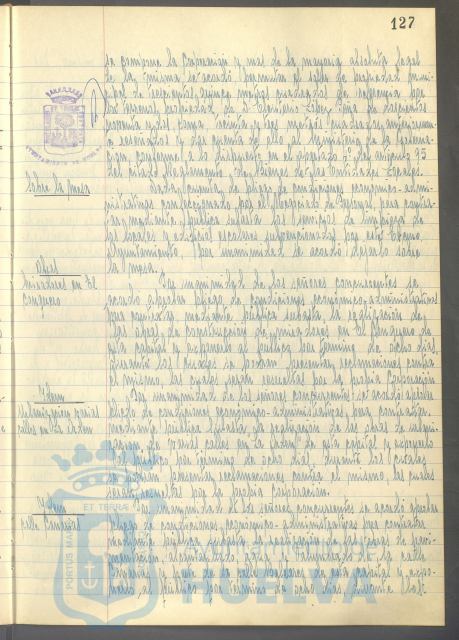 127
se compone la Corporación y mas de la mayoría absoluta legal
de la misma, se acordó permutar el solar de propiedad muni-
cipal de doscientos metros cuadrados de
por
y tres metros cuadrados, anteriormen-
te reseñados y dar cuenta de ello al Ministerio de la Goberna-
ción, conforme a lo dispuesto en el apartado 2º del artículo 95
del citado Reglamento de Bienes de las Entidades Locales.
Sobre la mesa
Dada cuenta de pliego de condiciones económico-admi-
nistrativas confeccionado por el Negociado de Personal, para contra-
tar mediante pública subasta los servicios de limpieza de
los locales y edificios escolares subvencionados por este Excmo.
Ayuntamiento. Por unanimidad se acordó dejarlo sobre
la mesa.
Obras
Miradores en El
Conquero
Por unanimidad de los señores concurrentes se
acordó aprobar pliego de condiciones económico-administrativas
para contratar mediante pública subasta la realización de
las obras de construcción de miradores en El Conquero de
esta capital y exponerlo al público por término de ocho días,
durante los cuales se podrán presentar reclamaciones contra
el mismo, las cuales serán resueltas por la propia Corporación.
Idem
calles en La Orden
Por unanimidad de los señores concurrentes se acordó aprobar
pliego de condiciones económico-administrativas, para contratar
mediante pública subasta, la realización de las obras de urbani-
zación de varias calles en La Orden de esta capital y exponerlo
al público por término de ocho días, durante los cuales
se podrán presentar reclamaciones contra el mismo, las cuales
serán resueltas por la propia Corporación.
Idem
calle Canarias
Por unanimidad de los señores concurrentes se acordó aprobar
pliego de condiciones económico-administrativas para contratar
mediante pública subasta la realización de las obras de pavi-
mentación, alcantarillado y de la calle
Canarias y parte de la calle Baleares de esta capital y expo-
nerlo al público por término de ocho días, durante los
PORTUS MARIS
ET TERRAE
HUELVA